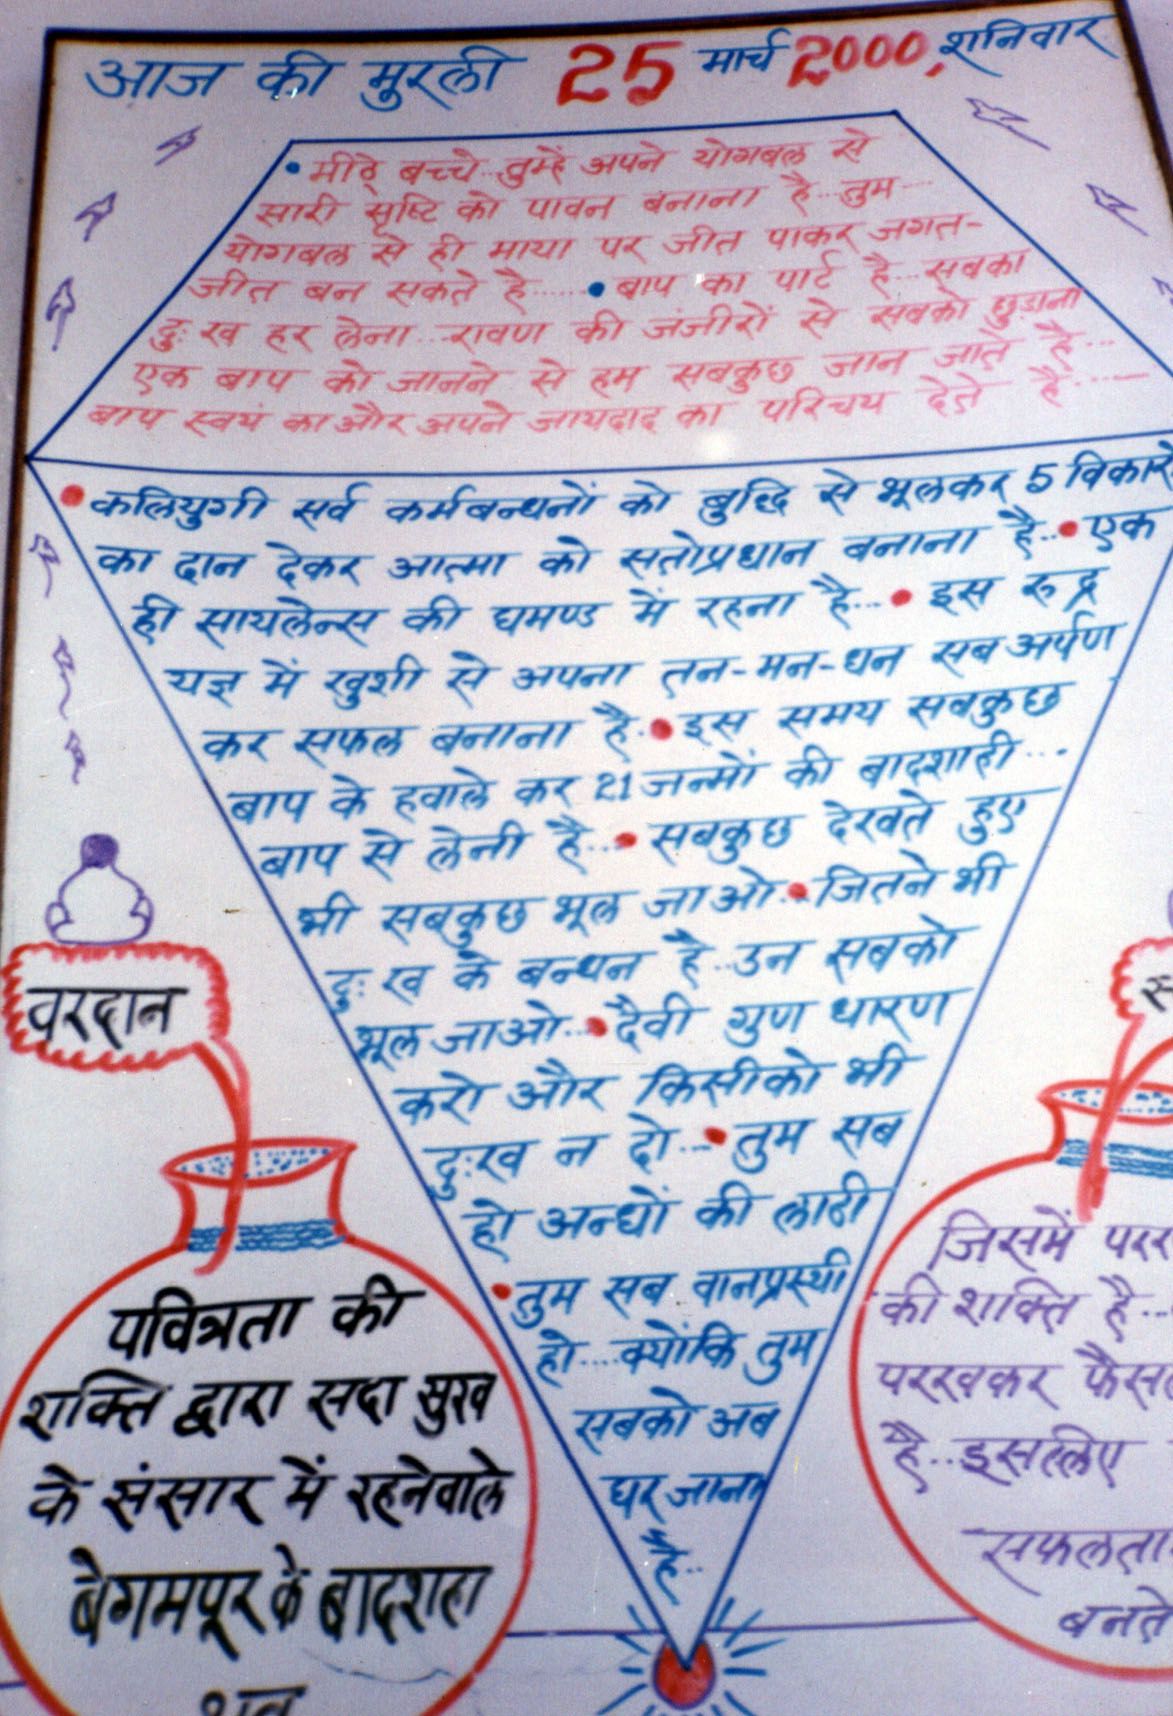 आज की मुरली 25 मार्च 2000, शनिवार
• मीठे बच्चे.. तुम्हें अपने योगबल से
सारी सृष्टि को पावन बनाना है.. तुम
योगबल से ही माया पर जीत पाकर जगत-
जीत बन सकते है..... • बाप का पार्ट है.. सबका
दुःख हर लेना... रावण की जंजीरों से सबको छुडाना
एक बाप को जानने से हम सबकुछ जान जाते है...
बाप स्वयं का और अपने जायदाद का परिचय देते है....
• कलियुगी सर्व कर्मबन्धनों को बुध्दि से भूलकर 5 विकारो
का दान देकर आत्मा को सतोप्रधान बनाना है.. • एक
ही सायलेन्स की घमण्ड में रहना है... • इस रूद्र
यज्ञ में खुशी से अपना तन-मन-धन सब अर्पण
कर सफल बनाना है. • इस समय सबकुछ
बाप के हवाले कर 21 जन्मों की बादशाही...
बाप से लेनी है... • सबकुछ देखते हुए
भी सबकुछ भूल जाओ. • जितने भी
दुःख के बन्धन है.. उन सबको
भूल जाओ... • दैवी गुण धारण
करो और किसीको भी
दुःख न दो... • तुम सब
हो अन्धों की लाठी
• तुम सब वानप्रस्थी
हो.... क्योंकि तुम
सबको अब
घर जाना
है..
वरदान
पवित्रता की
शक्ति द्वारा सदा सुख
के संसार में रहनेवाले
बेगमपूर के बादशहा
जिसमें
की शक्ति है..
परखकर
है.. इसलिए
सफलता
बनते